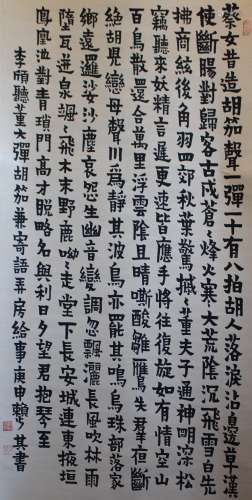 蔡女昔造胡笳聲一彈一十有八拍胡人落淚沾邊草漢
使斷腸對歸客古戍蒼〻烽火寒大荒陰沉飛雪白先
拂商絃後角羽四郊秋葉驚摵〻董夫子通神明深松
竊聽來妖精言遲更速皆應手將往復旋如有情空山
百鳥散還合萬里浮雲陰且晴嘶酸雛雁失羣夜斷
絕胡兒戀母聲川為靜其波鳥亦罷其鳴烏珠部落家
鄉遠邏娑沙塵哀怨生幽音變調忽飄灑長風吹林雨
墮瓦迸泉颯〻飛木末野鹿呦〻走堂下長安城連東掖垣
鳳凰池對青瑣門高才脫略名與利日夕望君抱琴至
李頎聽董大彈胡笳兼寄語弄房給事庚申賴少其書